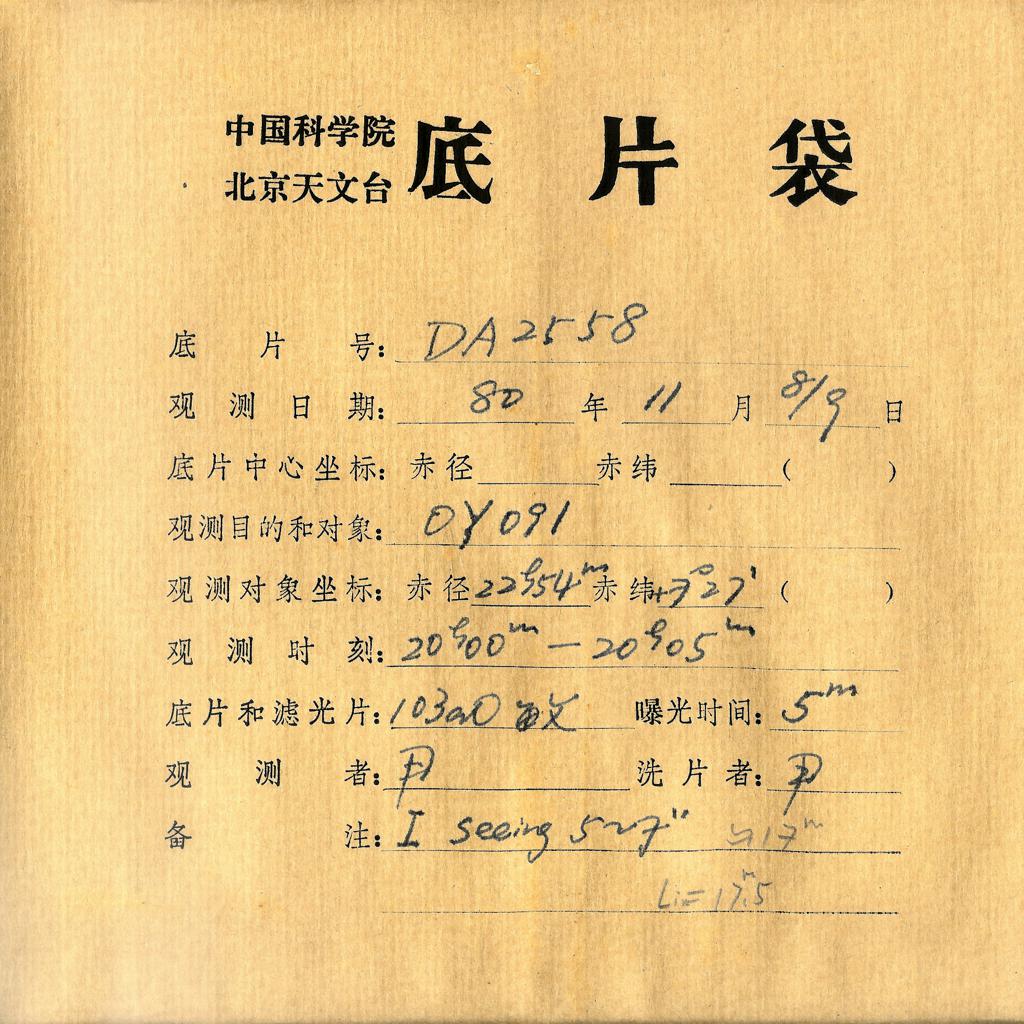 中国科学院
北京天文台 底片袋
底片号: DA2558
观测日期: 80年11月8/9日
底片中心坐标: 赤径 赤纬 ( )
观测目的和对象: OY091
观测对象坐标: 赤径22h54m赤纬+7°27' ( )
观测时刻: 20h00m—20h05m
底片和滤光片: 103aO 敏 曝光时间: 5m
观测者: 洗片者:
备注: I seeing 5~7" 17m
Li= 17m.5